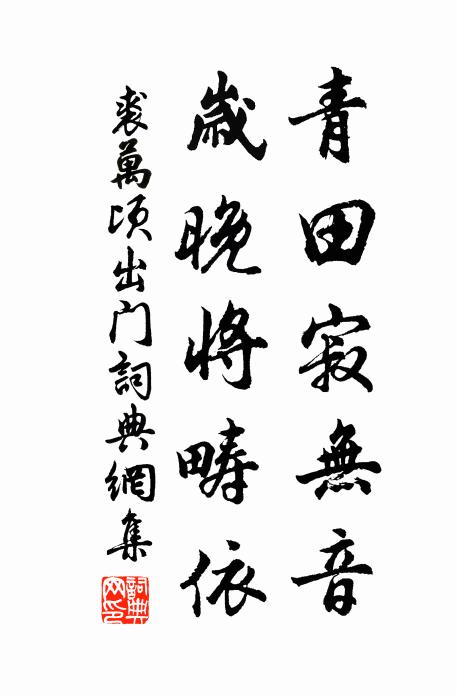 青田寂無音
歲晚將疇依
裘萬頃出門詞典網集
詞典网印